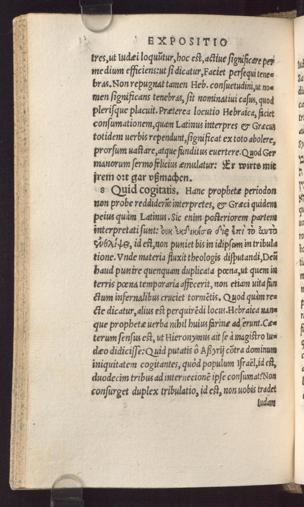 EXPOSITIO
tres, ut Iudæi loquũtur, hoc est, actiue significare per
medium efficiens: ut si dicatur, Faciet persequi tene-
bras. Non repugnat tamen Heb. consuetudini, ut no-
men significans tenebras, sit nominatiui casus, quod
plerisque placuit. Præterea locutio Hebraica, faciet
consumationem, quam Latinus interpres & Græcus
totidem uerbis rependunt, significat ex toto abolere,
prorsum uastare, atque funditus euertere. Quod Ger
manorum sermo felicius æmulatur: Er wirts mit
jrem ort gar vßmachen.
8 Quid cogitatis. Hanc prophetæ periodon
non probe reddiderũt interpretes, & Græci quidem
peius quàm Latinus. Sic enim posteriorem partem
interpretati sunt: οὐκ ἐκδικήσει δὶς ἐπὶ τὸ αὐτὸ
id est, non puniet bis in idipsum in tribula
tione. Vnde materia fluxit theologis disputandi, Deũ
haud punire quenquam duplicata pœna, ut quem in
terris pœna temporaria affecerit, non etiam uita fun
ctum infernalibus cruciet tormẽtis. Quod quàm re-
cte dicatur, alius est perquirẽdi locus. Hebraica nan-
que prophetæ uerba nihil huius farinæ adferunt. Cæ-
terum sensus est, ut Hieronymus ait se à magistro Iu-
dæo didicisse: Quid putatis ô Assyrij cõtra dominum
iniquitatem cogitantes, quòd populum Israël, id est,
duodecim tribus ad internecionẽ ipse consumat? Non
consurget duplex tribulatio, id est, non uobis tradet
Iudam